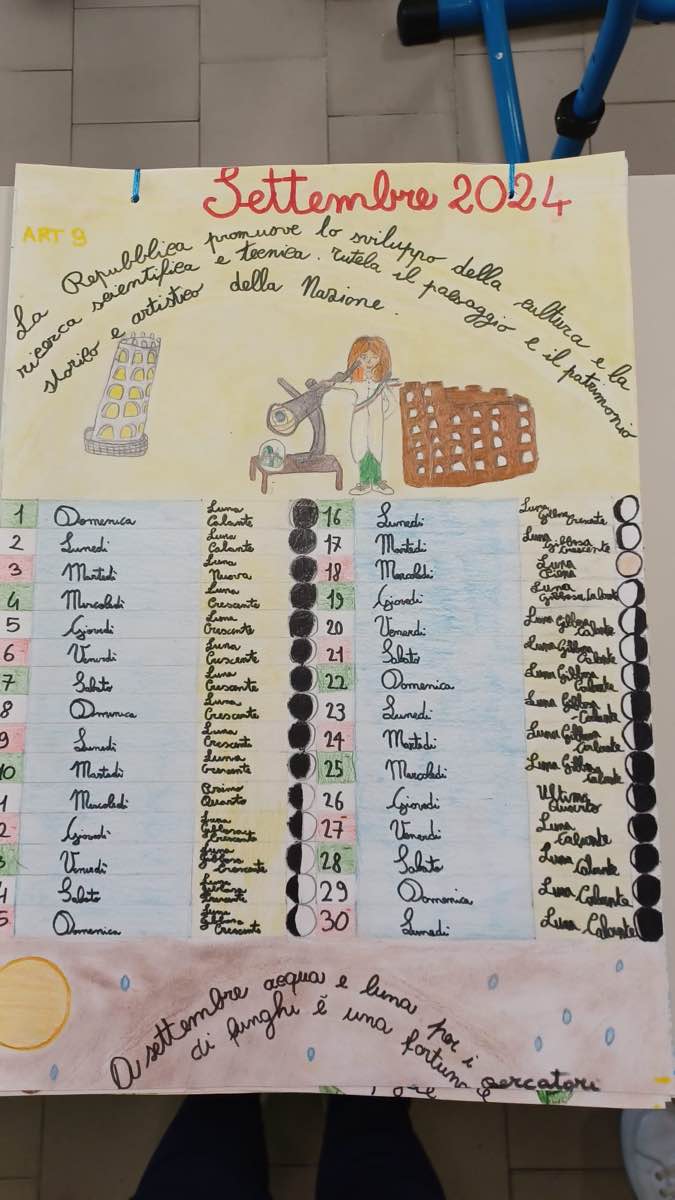 Settembre 2024
ART 9
La Repubblica promuove lo sviluppo della cultura e la
ricerca scientifica e tecnica. Tutela il paesaggio e il patrimonio
storico e artistico della Nazione.
1 Domenica Luna Calante
2 Lunedì Luna Calante
3 Martedì Luna Nuova
4 Mercoledì Luna Crescente
5 Giovedì Luna Crescente
6 Venerdì Luna Crescente
7 Sabato Luna Crescente
8 Domenica Luna Crescente
9 Lunedì Luna Crescente
10 Martedì Luna Crescente
1 Mercoledì Primo Quarto
2 Giovedì Luna Gibbosa Crescente
3 Venerdì Luna Gibbosa Crescente
4 Sabato Luna Crescente
5 Domenica Luna Gibbosa Crescente
16 Lunedì Luna Gibbosa Crescente
17 Martedì Luna Gibbosa Crescente
18 Mercoledì Luna Piena
19 Giovedì Luna Gibbosa Calante
20 Venerdì Luna Gibbosa Calante
21 Sabato Luna Gibbosa Calante
22 Domenica Luna Gibbosa Calante
23 Lunedì Luna Gibbosa Calante
24 Martedì Luna Gibbosa Calante
25 Mercoledì Luna Gibbosa Calante
26 Giovedì Ultimo Quarto
27 Venerdì Luna Calante
28 Sabato Luna Calante
29 Domenica Luna Calante
30 Lunedì Luna Calante
A settembre acqua e luna per i
di funghi è una fortuna cercatori